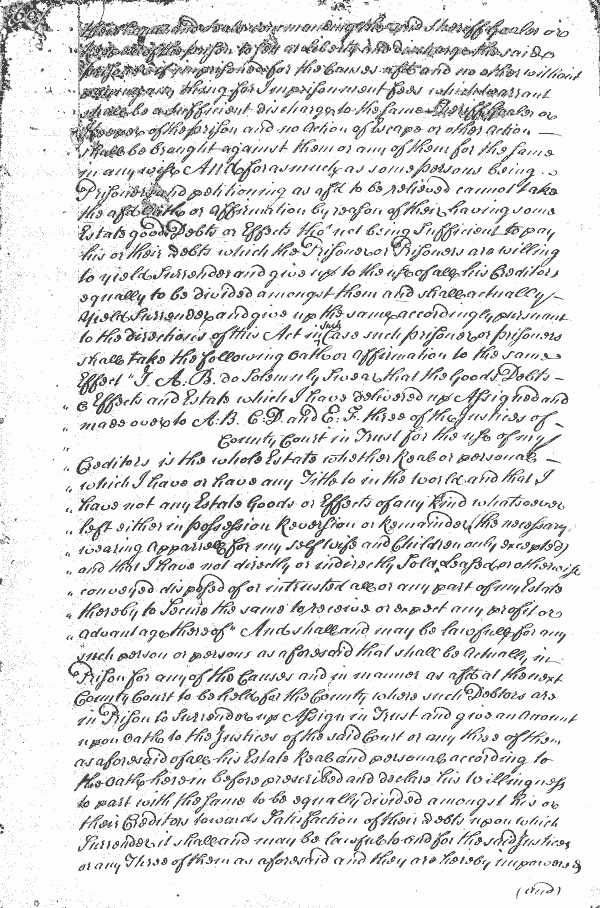 their hands and seales commanding the said Sheriff Goaler or
Keeper of the prison to sett at Liberty and discharge the said
prisoner if imprisoned for the Causes afsd and no other without
paying any thing for Imprisonment Fees which warrant
shall be a sufficient discharge to the same Sheriff Goaler or
Keeper of the prison and no action of Escape or other action —
shall be brought against them or any of them for the same
in any wise And forasmuch as some persons being
Prisoners and petitioning as afsd to be relieved cannot take
the afsd Oath or affirmation by reason of their having some
Estate goods Debts or Effects tho' not being Sufficient to pay
his or their debts which the Prisoner or Prisoners are willing
to yield Surrender and give up to the use of all his Creditors
equally to be divided amongst them and shall actually
Yield Surrender and give up the same accordingly pursuant
to the directions of this Act in such Case such prisoner or prisoners
shall take the following Oath or affirmation to the same
Effect "I. A. B. do Solemnly Swear that the Goods Debts —
" & Effects and Estate which I have delivered up Assigned and
" made over to A: B. C: D. and E: F. three of the Justices of —
" County Court in Trust for the use of my
" Creditors is the whole Estate whether Real or personal —
" which I have or have any Title to in the world and that I
" have not any Estate Goods or Effects of any kind whatsoever
" left either in possession Reversion or Remainder (the necessary
" wearing apparrell for my self wife and Children only excepted)
" and that I have not directly or indirectly Sold Leased or otherwise
" conveyed disposed of or intrusted all or any part of my Estate
" thereby to Secure the same to receive or expect any profit or
" advantage thereof" And shall and may be lawfull for any
such person or persons as aforesaid that shall be actually in
Prison for any of the Causes and in manner as afsd at the next
County Court to be held for the County where such Debtors are
in Prison to Surrender up Assign in Trust and give an amount
upon Oath to the Justices of the said Court or any three of them
as aforesaid of all his Estate Real and personal according to
the Oath herein before prescribed and declare his willingness
to part with the same to be equally divided amongst his or
their Creditors towards Satisfaction of their debts upon which
Surrender it shall and may be lawful to and for the said Justices
or any Three of them as aforesaid and they are hereby impowered
(and)